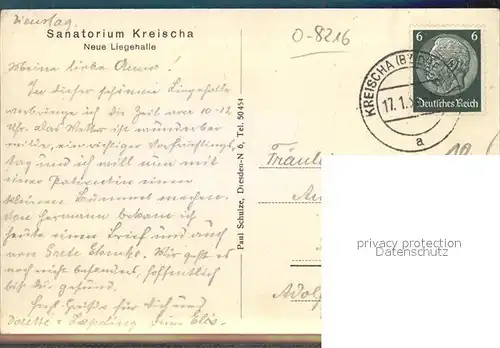 Dienstag.
Sanatorium Kreischa
Neue Liegehalle
O-8216
Meine liebe
In dieser schönen Liegehalle
verbringe ich die Zeit von 10-12
Uhr. das Wetter ist wunderbar
milde, ein richtiger Vorfrühlings-
tag und ich will nun mit
einer Patientin einen
kleinen Bummel machen.
Von Hermann bekam ich
heute einen Brief und auch
von Grete. Mir geht es
noch nicht besonders, hoffentlich
bist du gesund.
Grüße für Dich und
Paul Schulze, Dresden-N 6, Tel. 50454
6 6
Deutsches Reich
KREISCHA (BZ
17.1.
a
Fräulein
Adol
privacy protection
Datenschutz